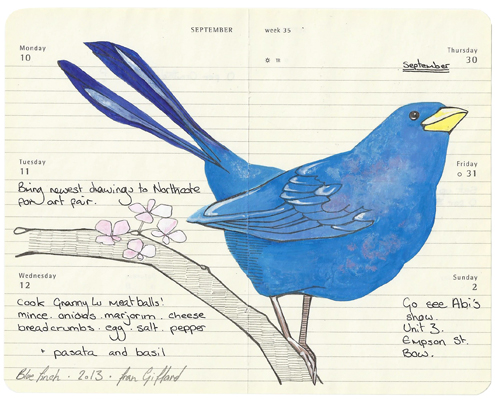 SEPTEMBER week 35
Monday
10
Thursday
30
September
Tuesday
11
Friday
31
Bring newest drawings to Northcote
pow art fair.
Wednesday
12
Sunday
2
Cook Granny Lu Meatballs!
mince. onions. marjorum. cheese
breadcrumbs. egg. salt. pepper
+ pasata and basil
Go see Abi's
show.
Unit 3.
Empson St.
Bow.
Blue Finch . 2013 . fran Giffard